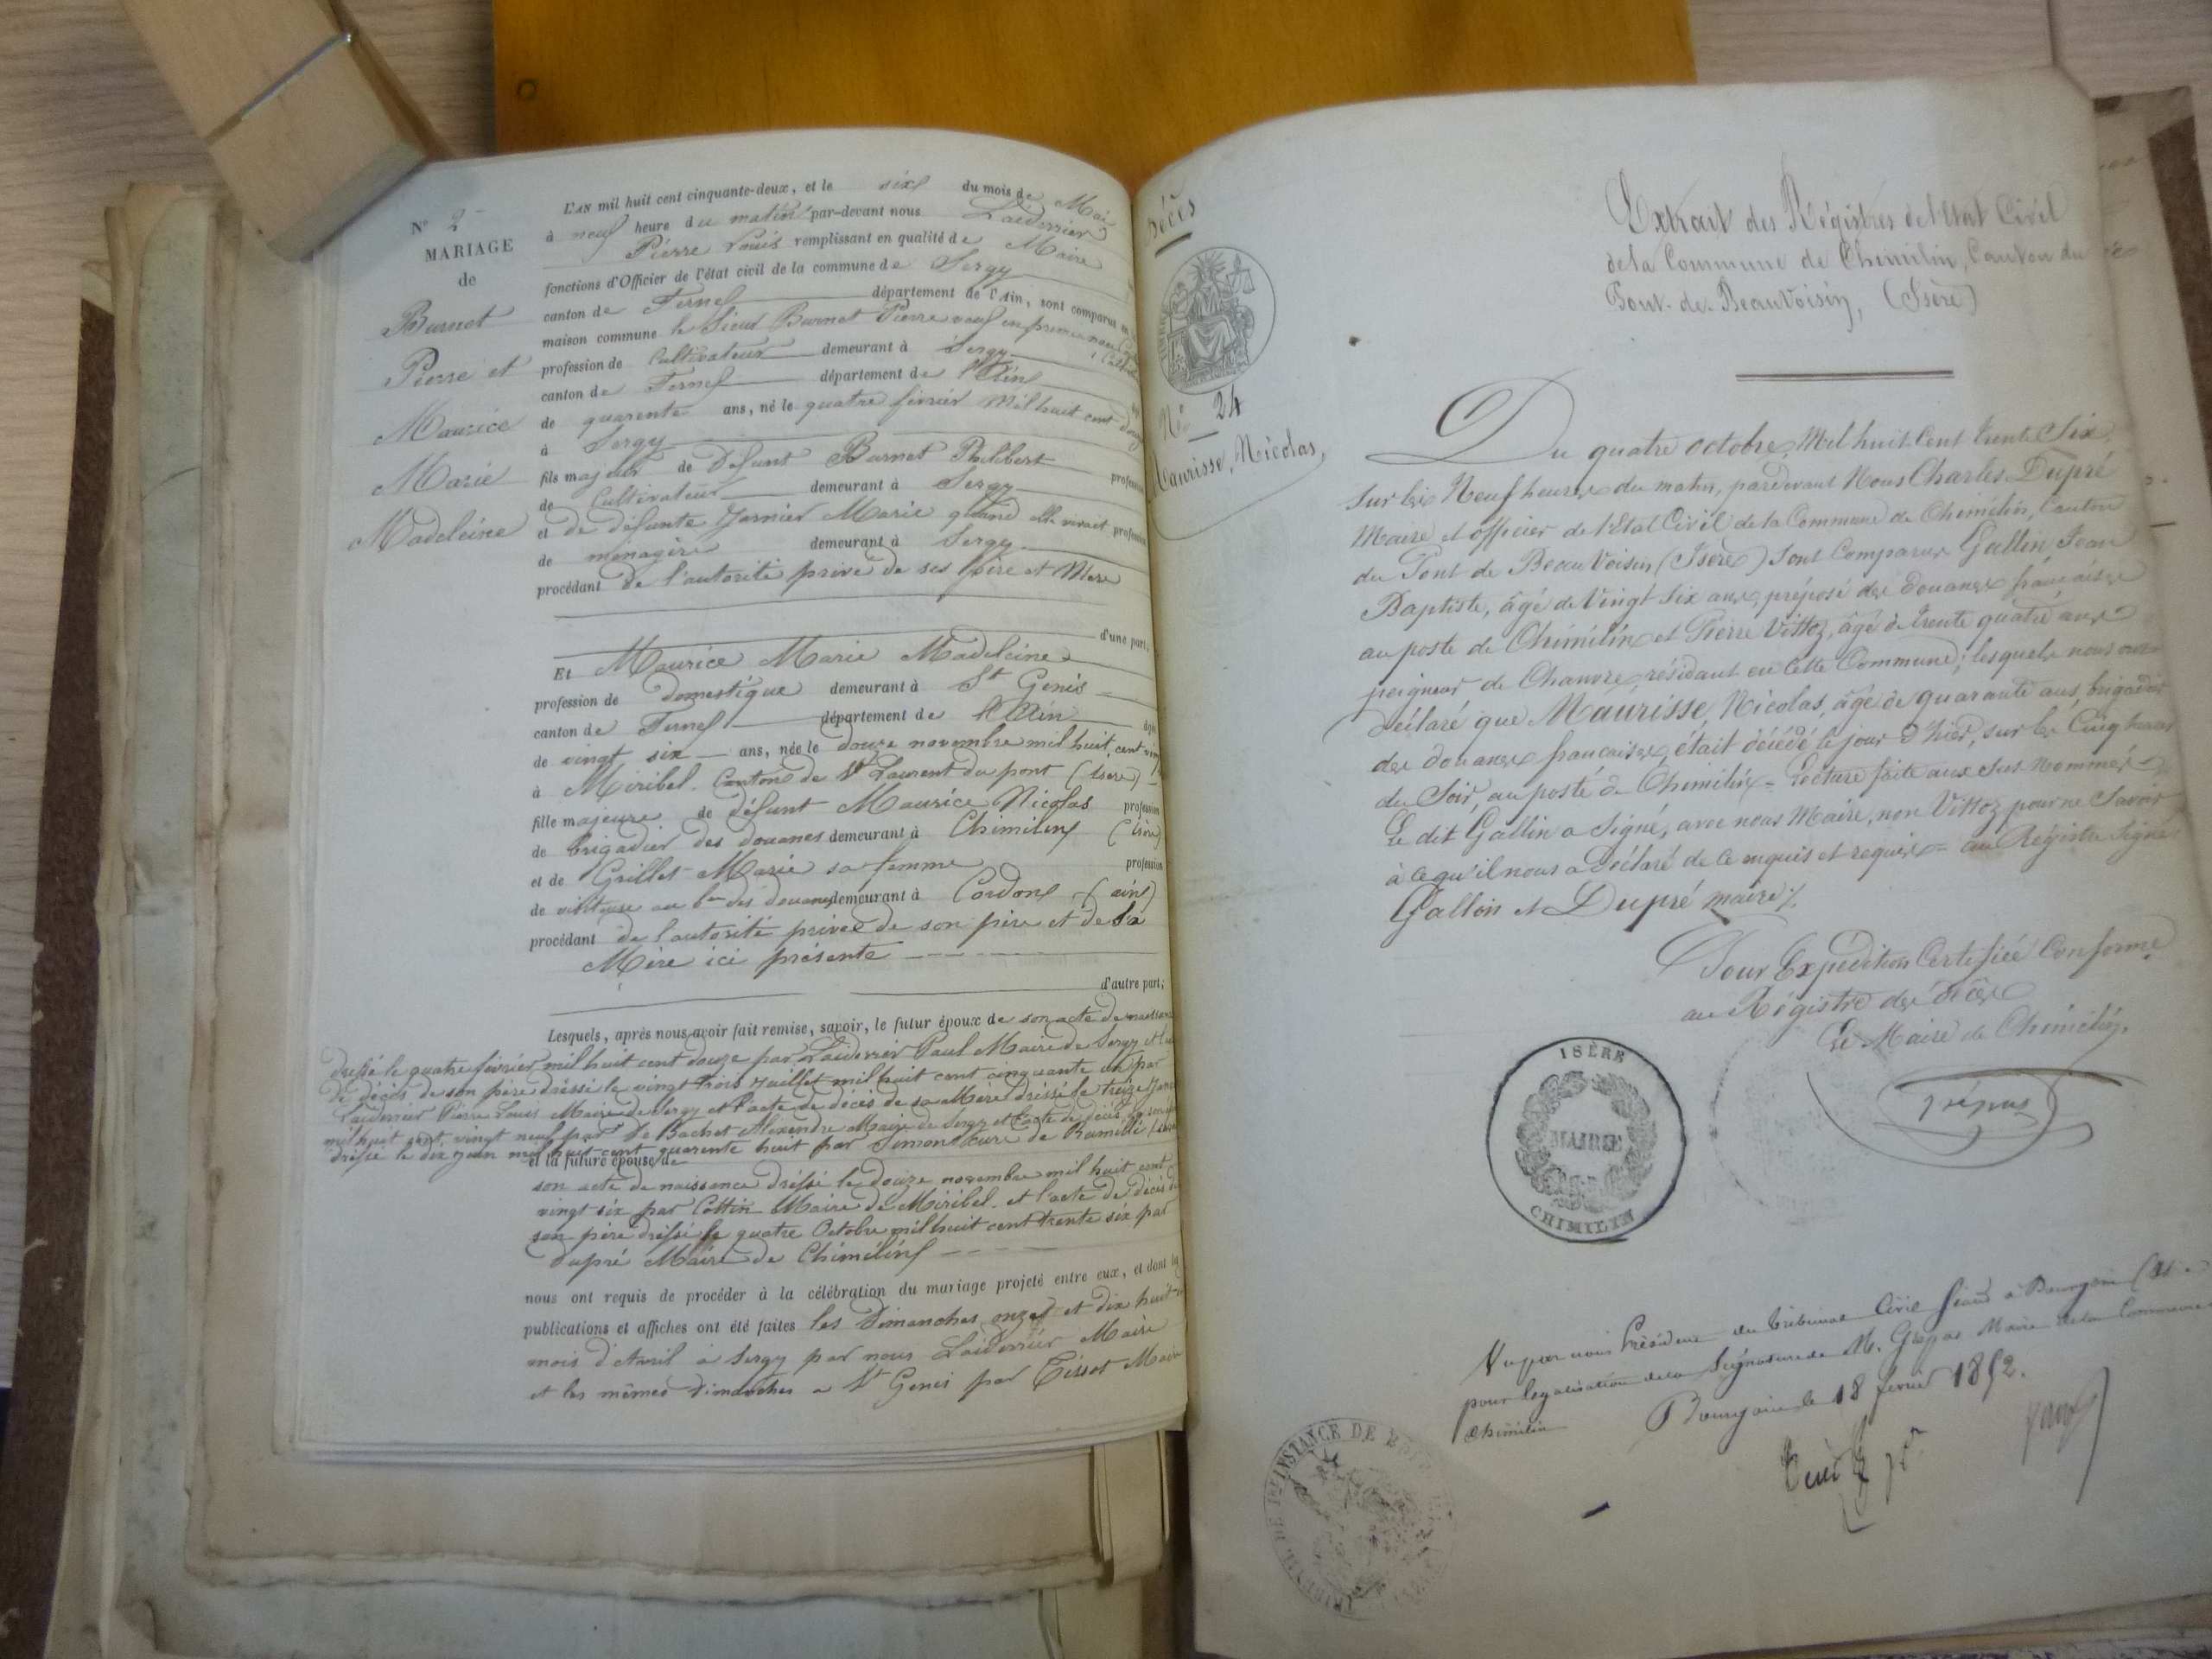 N° 2
MARIAGE
de
Burnet
Pierre et
Maurice
Marie
Madeleine
L'AN mil huit cent cinquante-deux, et le six du mois de Mai
à neuf heure du matin par-devant nous Laiderrier
Pierre Louis remplissant en qualité de Maire
fonctions d'Officier de l'état civil de la commune de Sergy
canton de Ferney département de l'Ain, sont comparus en
maison commune le Sieur Burnet Pierre veuf en
profession de Cultivateur demeurant à Sergy
canton de Ferney département de l'Ain
de quarente ans, né le quatre février mil huit cent douze
à Sergy
fils majeur de défunt Burnet Philibert profession
de Cultivateur demeurant à Sergy
et de défunte Jarnier Marie quand elle vivait profession
de ménagère demeurant à Sergy
procédant de l'autorité privé de ses père et Mere
d'une part,
Et Maurice Marie Madeleine
profession de Domestique demeurant à St Genis
canton de Ferney département de l'Ain
de vingt six ans, née le douze novembre mil huit cent
à Miribel Canton de St Laurent du pont (Isere)
fille majeure de défunt Maurice Nicolas profession
de brigadier des douanes demeurant à Chimilin (Isère)
et de Grillet Marie sa femme profession
de visiteuse au des douanes demeurant à Cordon (ain)
procédant de l'autorité privée de son père et de sa
Mère ici présente
d'autre part;
Lesquels, après nous avoir fait remise, savoir, le futur époux de son acte de naissance
dressé le quatre février mil huit cent douze par Laiderrier Paul Maire de Sergy et
de décès de son père dressé le vingt trois juillet mil huit cent cinquante un par
Laiderrier Pierre Louis Maire de Sergy et l'acte de décès de sa Mère dressé le treize
mil huit cent vingt neuf par De Bachet Alexendre Maire de Sergy et l'acte de décès de
dressé le dix juin mil huit cent quarente huit par Simond de Rumilli
et la future épouse de
son acte de naissance dressé le douze novembre mil huit cent
vingt six par Cottin Maire de Miribel et l'acte de décès de
son père dressé le quatre Octobre mil huit cent trente six par
dupré Maire de Chimilin
nous ont requis de procéder à la célébration du mariage projeté entre eux, et dont les
publications et affiches ont été faites les Dimanches onze et dix huit
mois d'Avril à Sergy par nous Laiderrier Maire
et les mêmes Dimanches a St Genis par Tissot Maire
Décès
N° 24
Maurisse, Nicolas,
Extrait des Régistres de l'Etat Civil
de la Commune de Chimilin, Canton du
Pont-de-Beauvoisin, (Isère)
Du quatre octobre, Mil huit Cent trente Six,
Sur les Neuf heures du matin, pardevant Nous Charles Dupré
Maire et officier de l'Etat Civil de la Commune de Chimilin, Canton
du Pont de Beauvoisin (Isère) sont Comparus Gallin Jean
Baptiste, âgé de Vingt Six ans, préposé des Douanes françaises
au poste de Chimilin et Pierre Vittoz, âgé de trente quatre ans
peigneur de Chanvre, résidant en Cette Commune; lesquels nous ont
Déclaré que Maurisse, Nicolas, âgé de quarante ans, brigadier
des douanes françaises, était décédé le jour d'hier, sur les Cinq heures
du Soir, au poste de Chimilin = Lecture faite aux sus Nommés
Le dit Gallin a Signé, avec nous Maire, non Vittoz pour ne Savoir
à ce qu'il nous a Déclaré de ce enquis et requis = au Régistre Signé
Gallin et Dupré maire
Pour Expédition Certifiée Conforme
au Régistre des décès
Le Maire de Chimilin.
Grépas
ISÈRE
MAIRIE
CHIMILIN
Vu par nous Président du tribunal Civil séant à Bourgoin
pour légalisation de la Signature de M. Grépas Maire de la Commune
Chimilin
Bourgoin le 18 février 1852.
INSTANCE DE